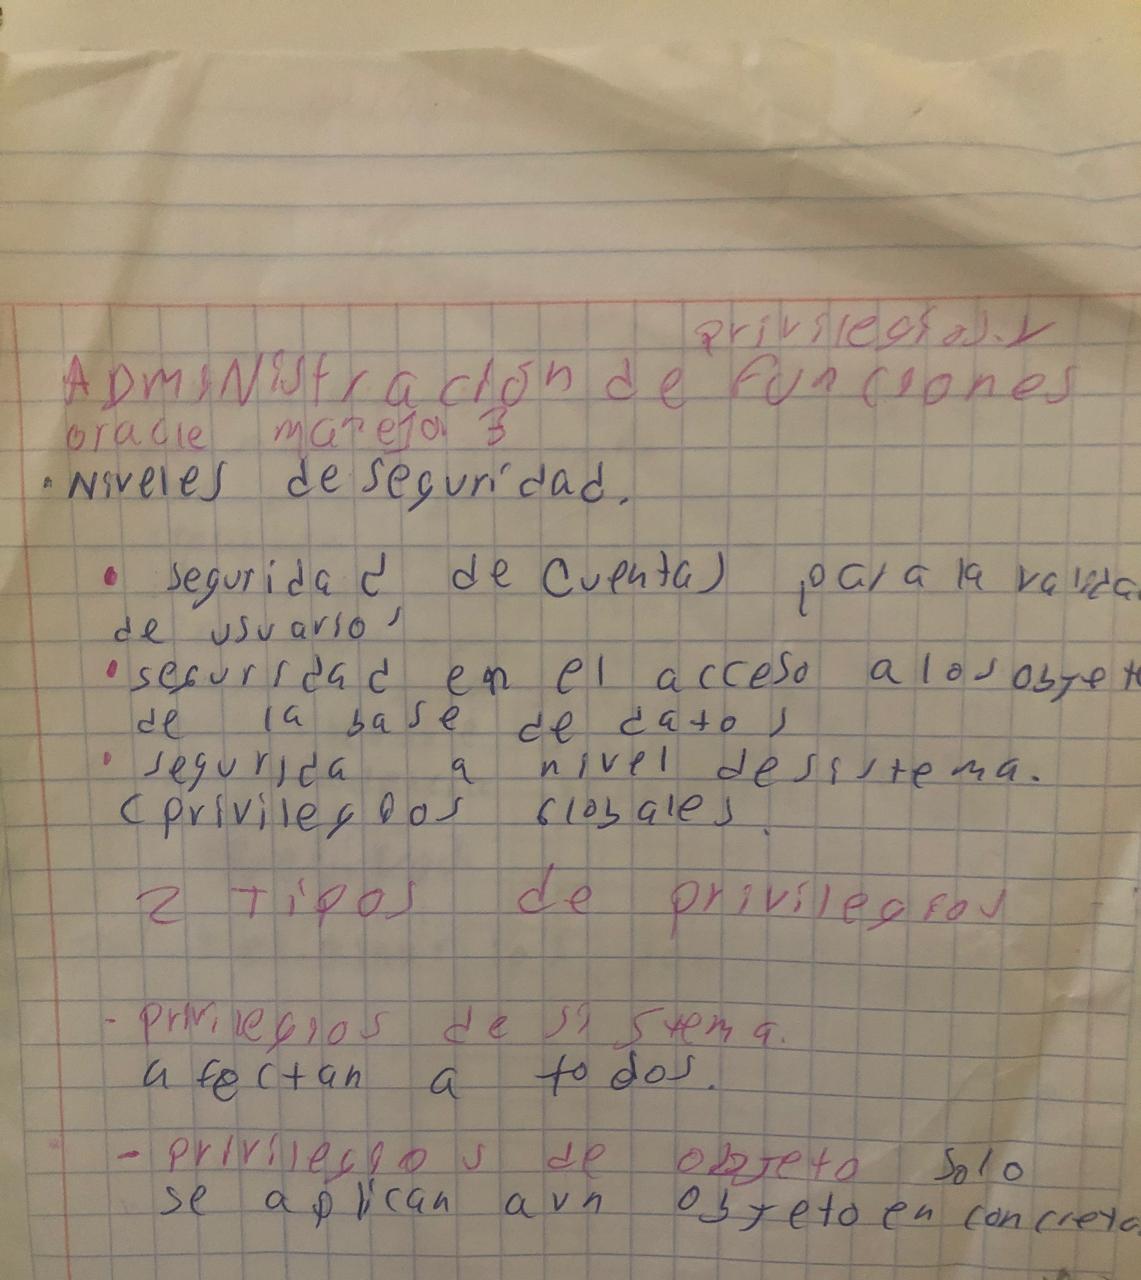 privilegios. y
ADmiNistración de funciones
oracle maneja 3
. Niveles de seguridad.
• seguridad de cuentas para la valida
de usuarios
• seguridad en el acceso a los objet
de la base de datos
• segurida a nivel de sistema.
(privilegios globales.
2 tipos de privilegios
- privilegios de sistema.
afectan a todos.
- privilegios de objeto solo
se aplican aun objeto en concreto.